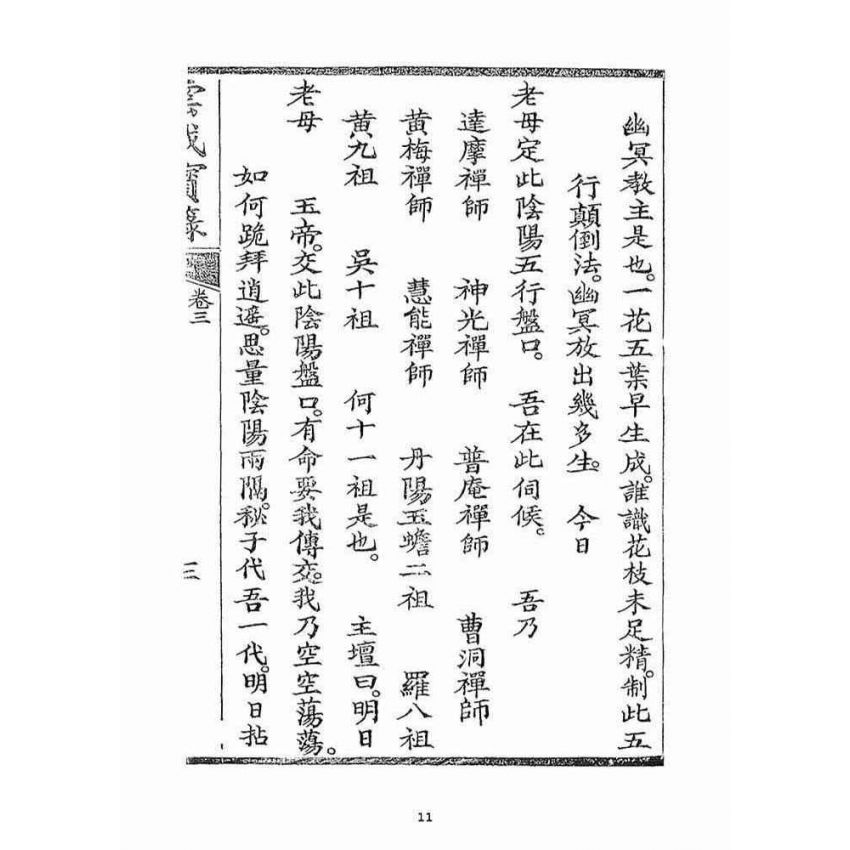 幽冥教主是也。一花五葉早生成。誰識花枝未足精。制此五
行顛倒法。幽冥放出幾多生。 今日
老母定此陰陽五行盤口。 吾在此伺候。 吾乃
達摩禪師 神光禪師 普庵禪師 曹洞禪師
黃梅禪師 慧能禪師 丹陽玉蟾二祖 羅八祖
黃九祖 吳十祖 何十一祖是也。 主壇曰。明日
老母 玉帝。交此陰陽盤口。有命要我傳交。我乃空空蕩蕩。
如何跪拜逍遥。思量陰陽兩隔。秘子代吾一代。明日拈
寶籙 卷三
三
11